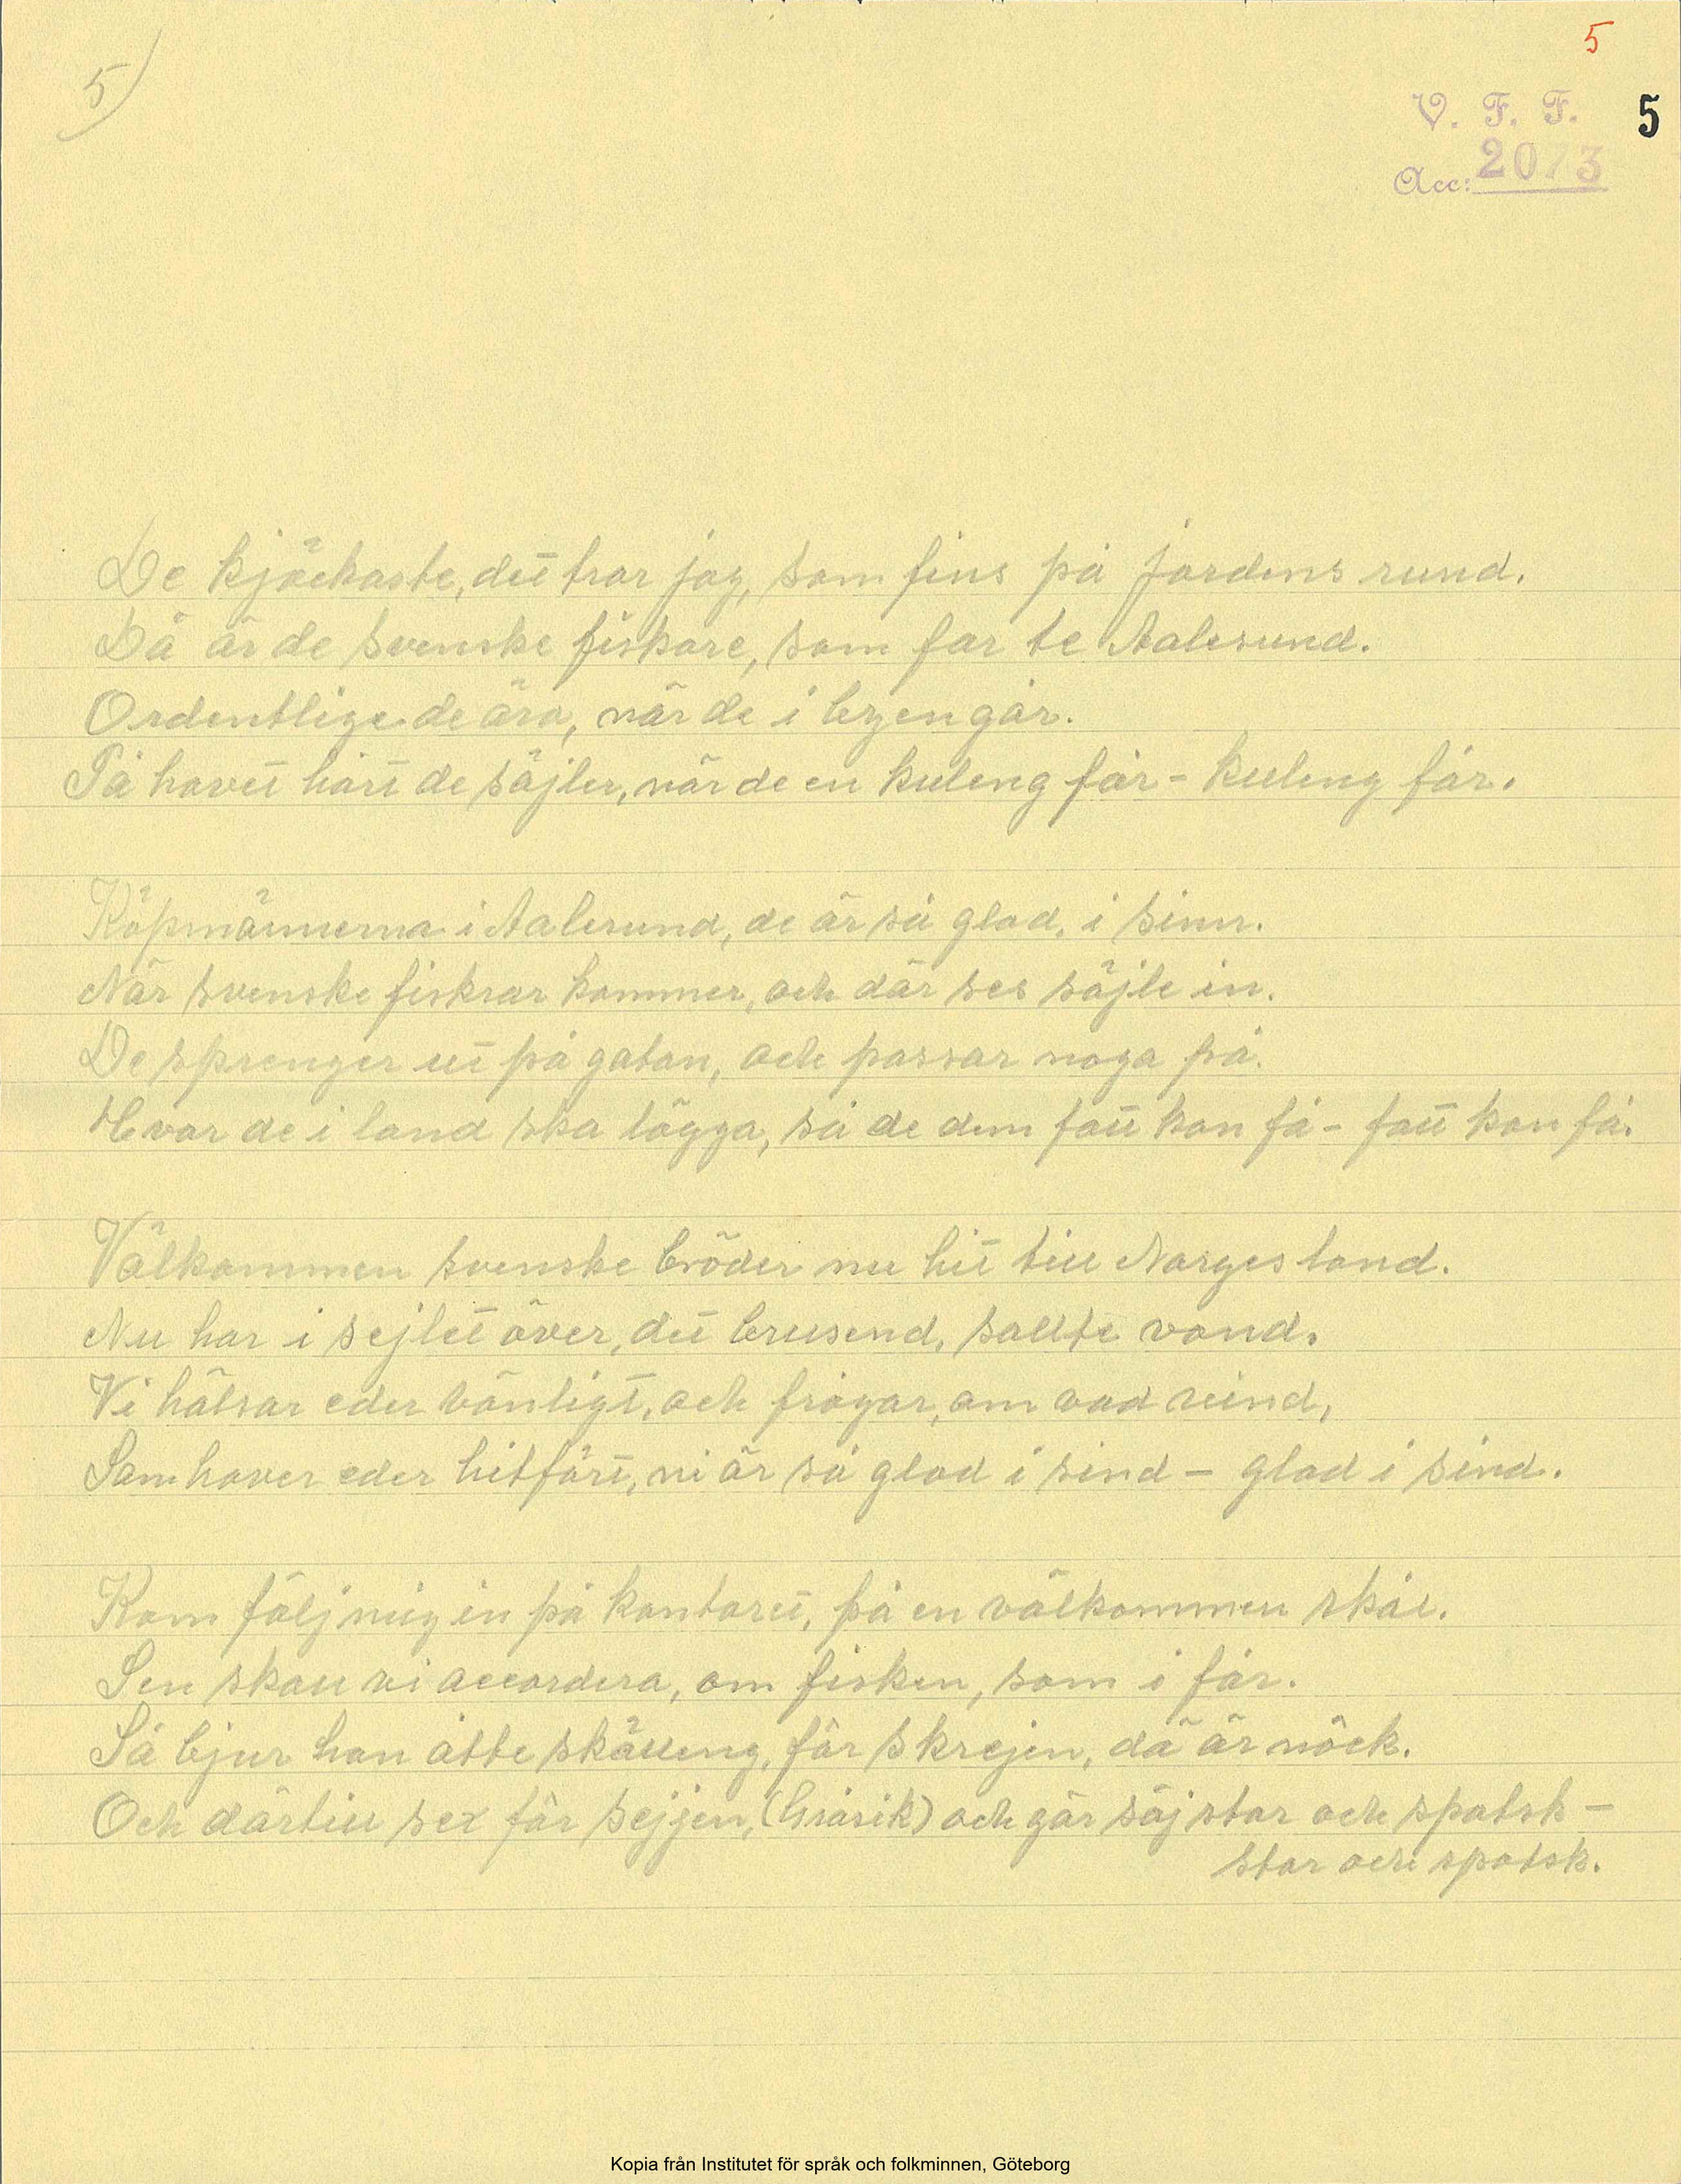 5)
5
V. F. F. 5
Acc: 2073
De kjäckaste, det tror jag, som fins på jordens rund.
Dä är de svenske fiskare, som far te Aalesund.
Ordentlige de ära, när de i byen går.
På havet hårt de säjler, när de en kuleng får - kuleng får.
Köpmännerna i Aalesund, de är så glad, i sinn.
När svenske fiskrar kommer, och där ses säjle in.
De sprenger ut på gatan, och passar noga på.
Hvar de i land ska lägga, så de dem fatt kan få - fatt kan få.
Välkommen svenske bröder nu hit till Norges land.
Nu har i sejlet över, det brusend, sallte vand.
Vi hälsar eder vänligt, och frågar, om vad vind,
Som haver eder hitfört, ni är så glad i sind - glad i sind.
Kom följ mig in på kontoret, på en välkommen skål.
Sen skall vi accordera, om fisken, som i får.
Så bjur han åtte skälleng, får skrejen, dä är nöck.
Och därtill sex får sejjen, (Gråsik) och gör säj stor och spotsk -
stor och spotsk.
Kopia från Institutet för språk och folkminnen, Göteborg